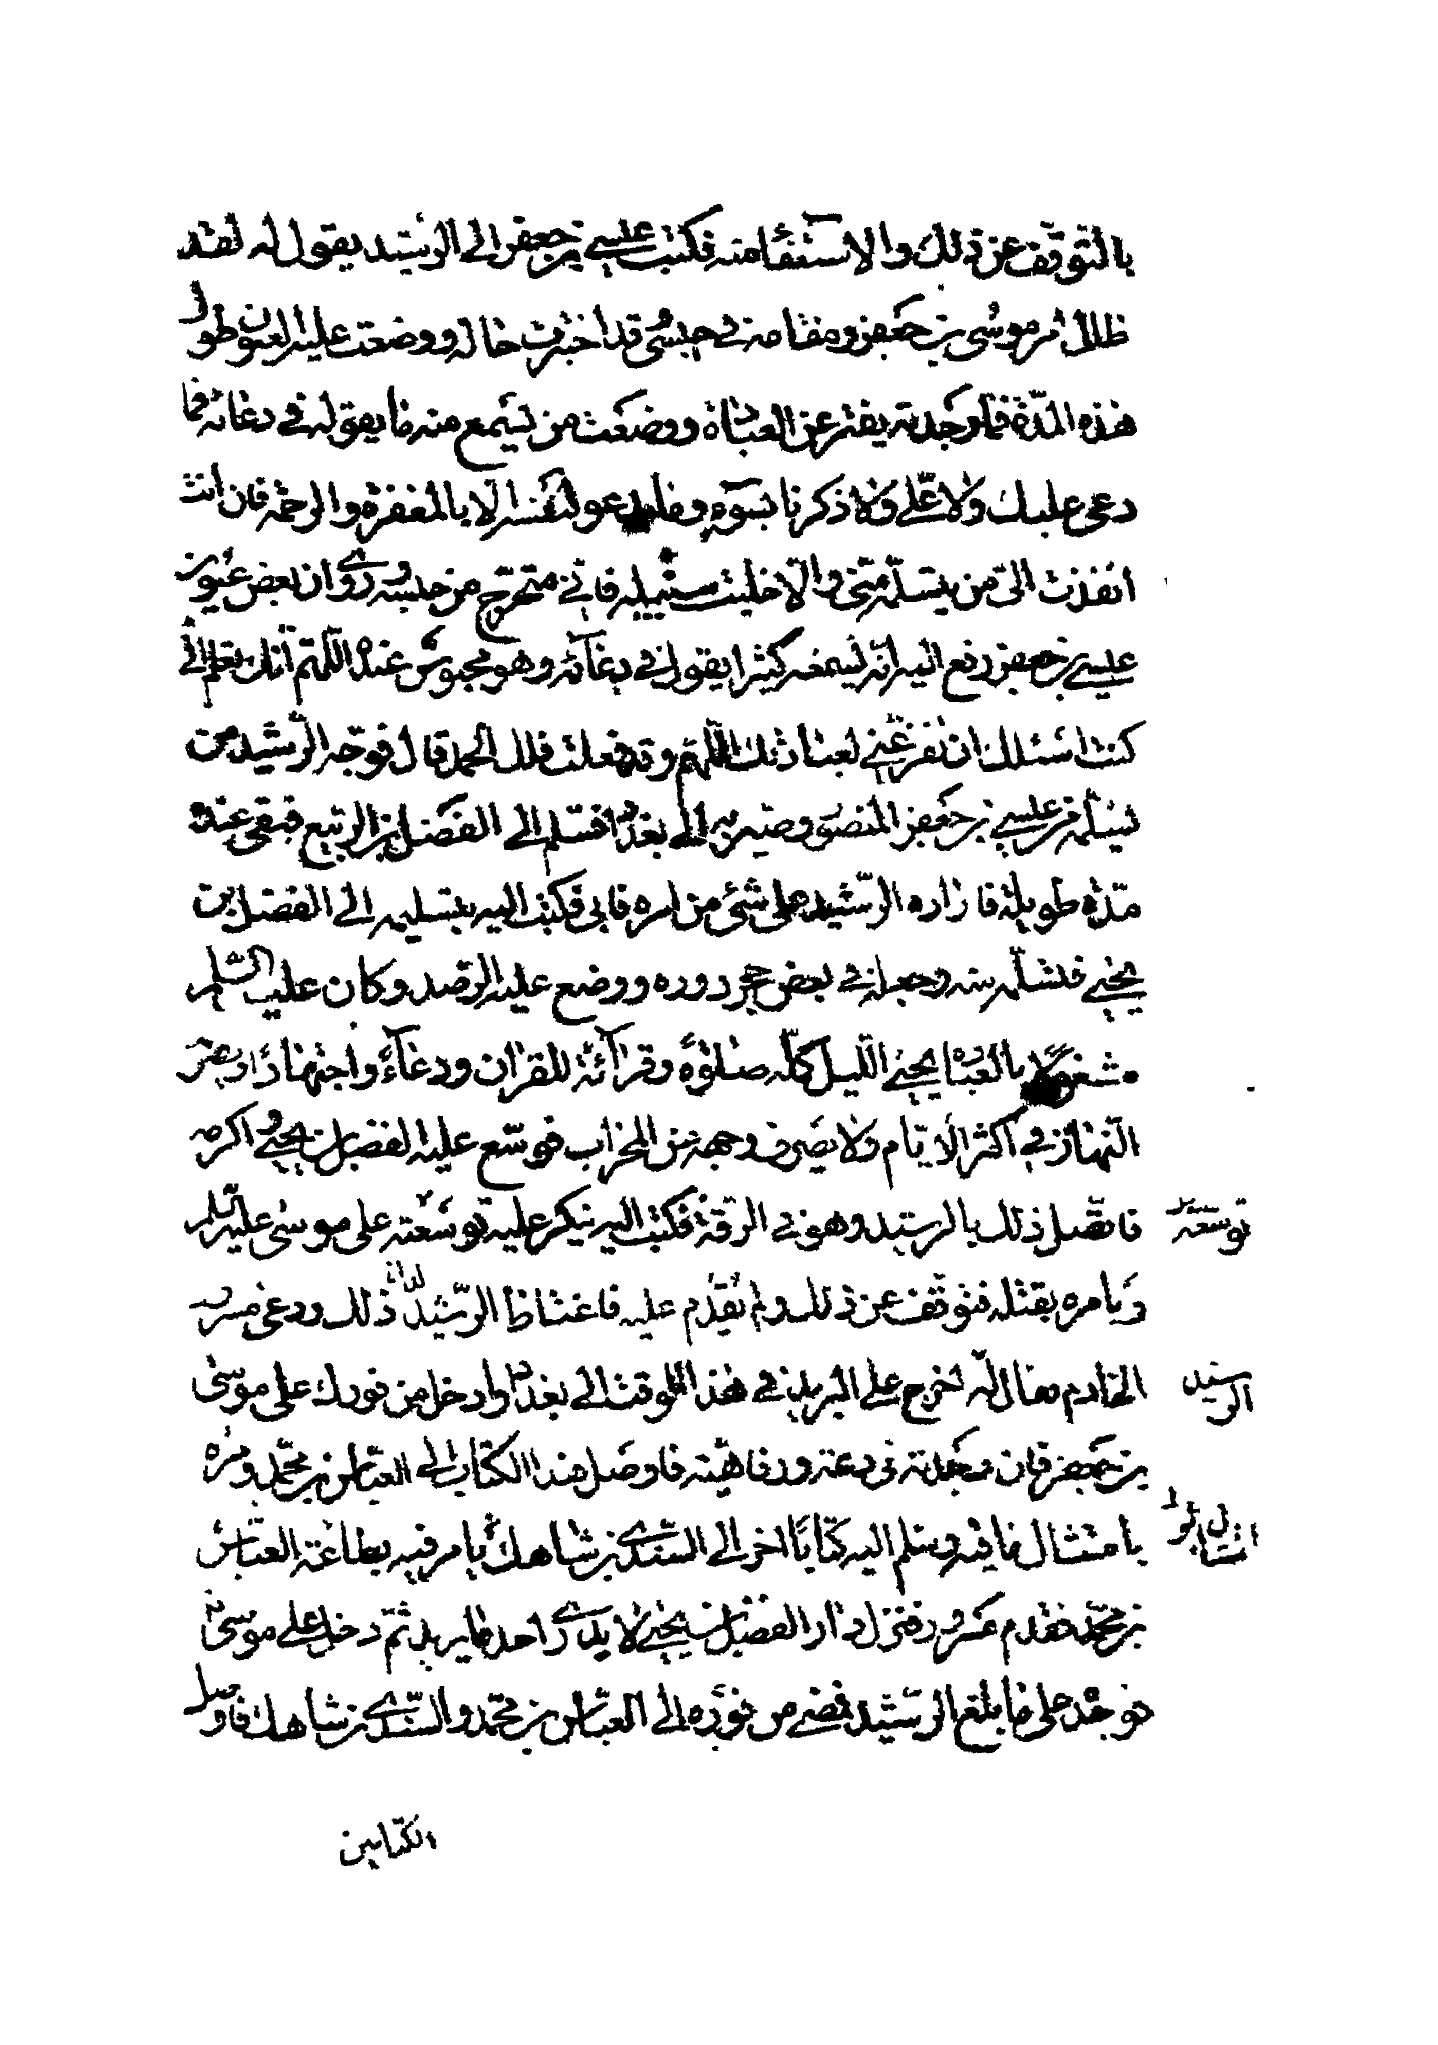 بالتوقف عن ذلك والاستعفاء منه فكتب عيسى بن جعفر الى الرشيد يقول له لقد
طال امر موسى بن جعفر ومقامه في حبسى قد اختبرت حاله ووضعت عليه العيون طول
هذه المدّة فما وجدته يفتر عن العبادة ووضعت من يسمع منه ما يقوله في دعائه فما
دعى عليك ولا علىّ ولا ذكرنا بسوء وما يدعو لنفسه الا بالمغفرة والرحمة فان انت
انفذت الىّ من يتسلّمه منّى والّا خليت سبيله فانّي متحرّج من حبسه روى ان بعض عيون
عيسى بن جعفر رفع اليه انّه ليسمعه كثيرا يقول في دعائه وهو محبوس عنده اللّهم انّك تعلم انّي
كنت اسئلك ان تفرغنى لعبادتك اللّهم وقد فعلت فلك الحمد قال فوجّه الرّشيد من
تسلّمه من عيسى بن جعفر المنصور وصيّر به الى بغداد فسلّم الى الفضل بن الربيع فبقى عنده
مدّة طويلة فاراده الرّشيد على شئ من امره فابى فكتب اليه بتسليمه الى الفضل بن
يحيى فتسلّمه منه وجعله في بعض حجر دوره ووضع عليه الرّصد وكان عليه السّلم
مشغولا بالعبادة يحيى اللّيل كلّه صلوة وقرآئة للقران ودعآء واجتهادا ويصوم
النّهار في اكثر الايّام ولا يصرف وجهه عن المحراب فوسّع عليه الفضل بن يحيى واكرمه
فاتّصل ذلك بالرشيد وهو في الرقّة فكتب اليه ينكر عليه توسعته على موسى عليه السّلم
توسعته
ويامره بقتله فتوقّف عن ذلك ولم يقدم عليه فاغتاظ الرّشيد لذلك ودعى مسرور
الخادم فقال له اخرج على البريد في هذا الوقت الى بغداد وادخل من فورك على موسى
الرشيد
بن جعفر فان وجدته في دعة ورفاهية فاوصل هذا الكتاب الى العبّاس بن محمّد ومره
بامتثال ما فيه وسلّم اليه كتابا اخر الى السّندى بن شاهك يامر فيه بطاعة العبّاس
بن محمّد فقدم مسرور فنزل دار الفضل بن يحيى لا يدرى احد ما يريد ثمّ دخل على موسى
فوجده على ما بلغ الرّشيد فمضى من فوره الى العبّاس بن محمّد والسّندى بن شاهك فاوصل
الكتابين